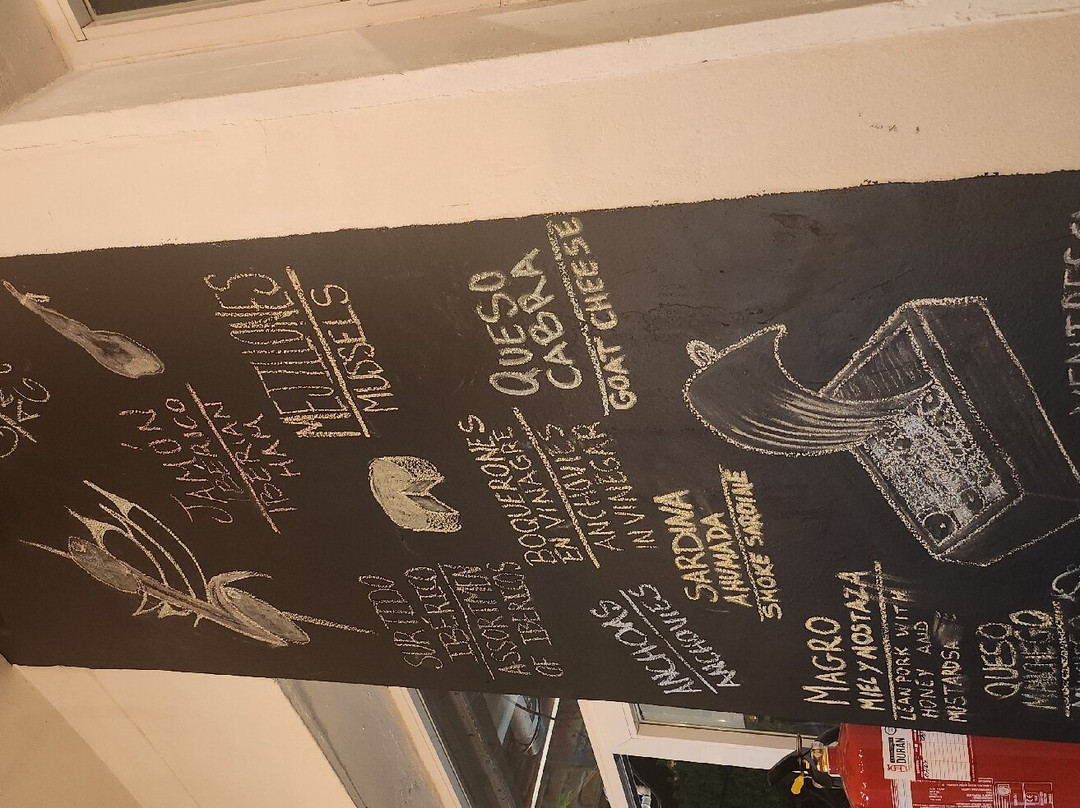 JAMON
IBERICO
IBERIAN
HAM
MEJILLONES
MUSSELS
SURTIDO
IBERICO
ASSORTMENT
OF IBERICOS
BOQUERONES
EN VINAGRE
ANCHOVIES
IN VINEGAR
QUESO
CABRA
GOAT CHEESE
ANCHOAS
ANCHOVIES
SARDINA
AHUMADA
SMOKE SARDINE
MAGRO
MIEL Y MOSTAZA
LEAN PORK WITH
HONEY AND
MUSTARD SA
QUESO
MANCHEGO
DURAN